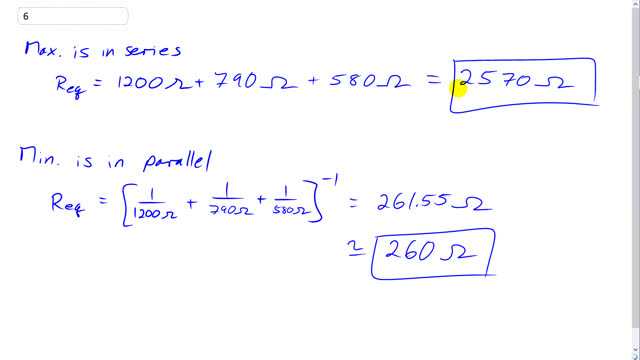 6
Max. is in series
Req = 1200Ω + 790Ω + 580Ω = 2570Ω
Min. is in parallel
Req = [1/1200Ω + 1/790Ω + 1/580Ω]⁻¹ = 261.55Ω
≃ 260Ω